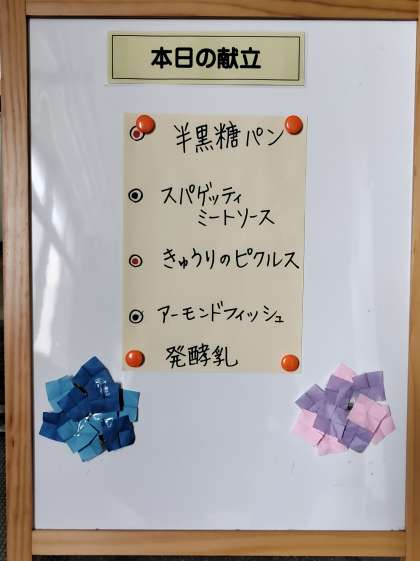 本日の献立
◉ 半黒糖パン
◉ スパゲッティ
ミートソース
◉ きゅうりのピクルス
◉ アーモンドフィッシュ
発酵乳